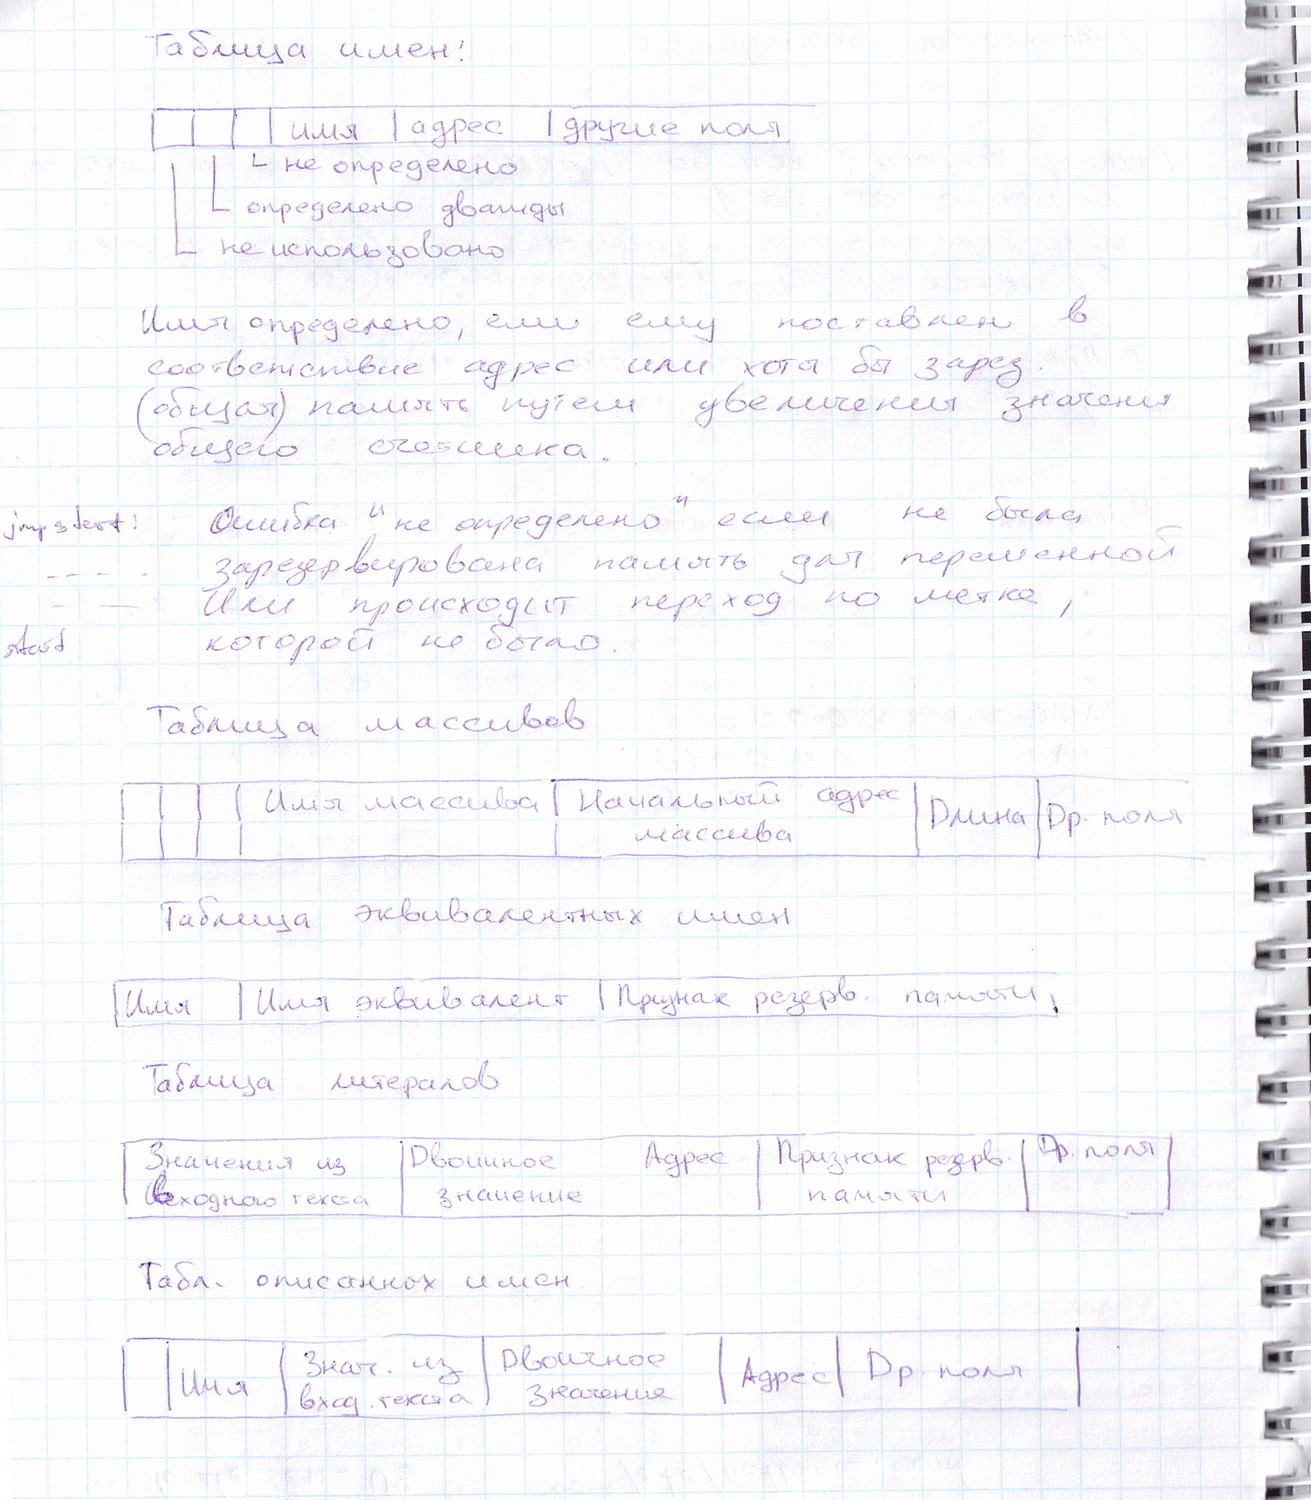 Таблица имен:
имя адрес другие поля
не определено
определено дважды
не использовано
Имя определено, если ему поставлен в
соответствие адрес или хотя бы зарез.
(общая) память путем увеличения значения
общего счетчика.
jmp start: Ошибка "не определено" если не была
зарезервирована память для переменной
Или происходит переход по метке,
start которой не было.
Таблица массивов
Имя массива Начальный адрес Длина Др. поля
массива
Таблица эквивалентных имен
Имя Имя эквивалент Признак резерв. памяти
Таблица литералов
Значения из Двоичное Адрес Признак резерв. Др. поля
входного текста значение памяти
Табл. описанных имен
Имя Знач. из Двоичное Адрес Др. поля
вход. текста значение